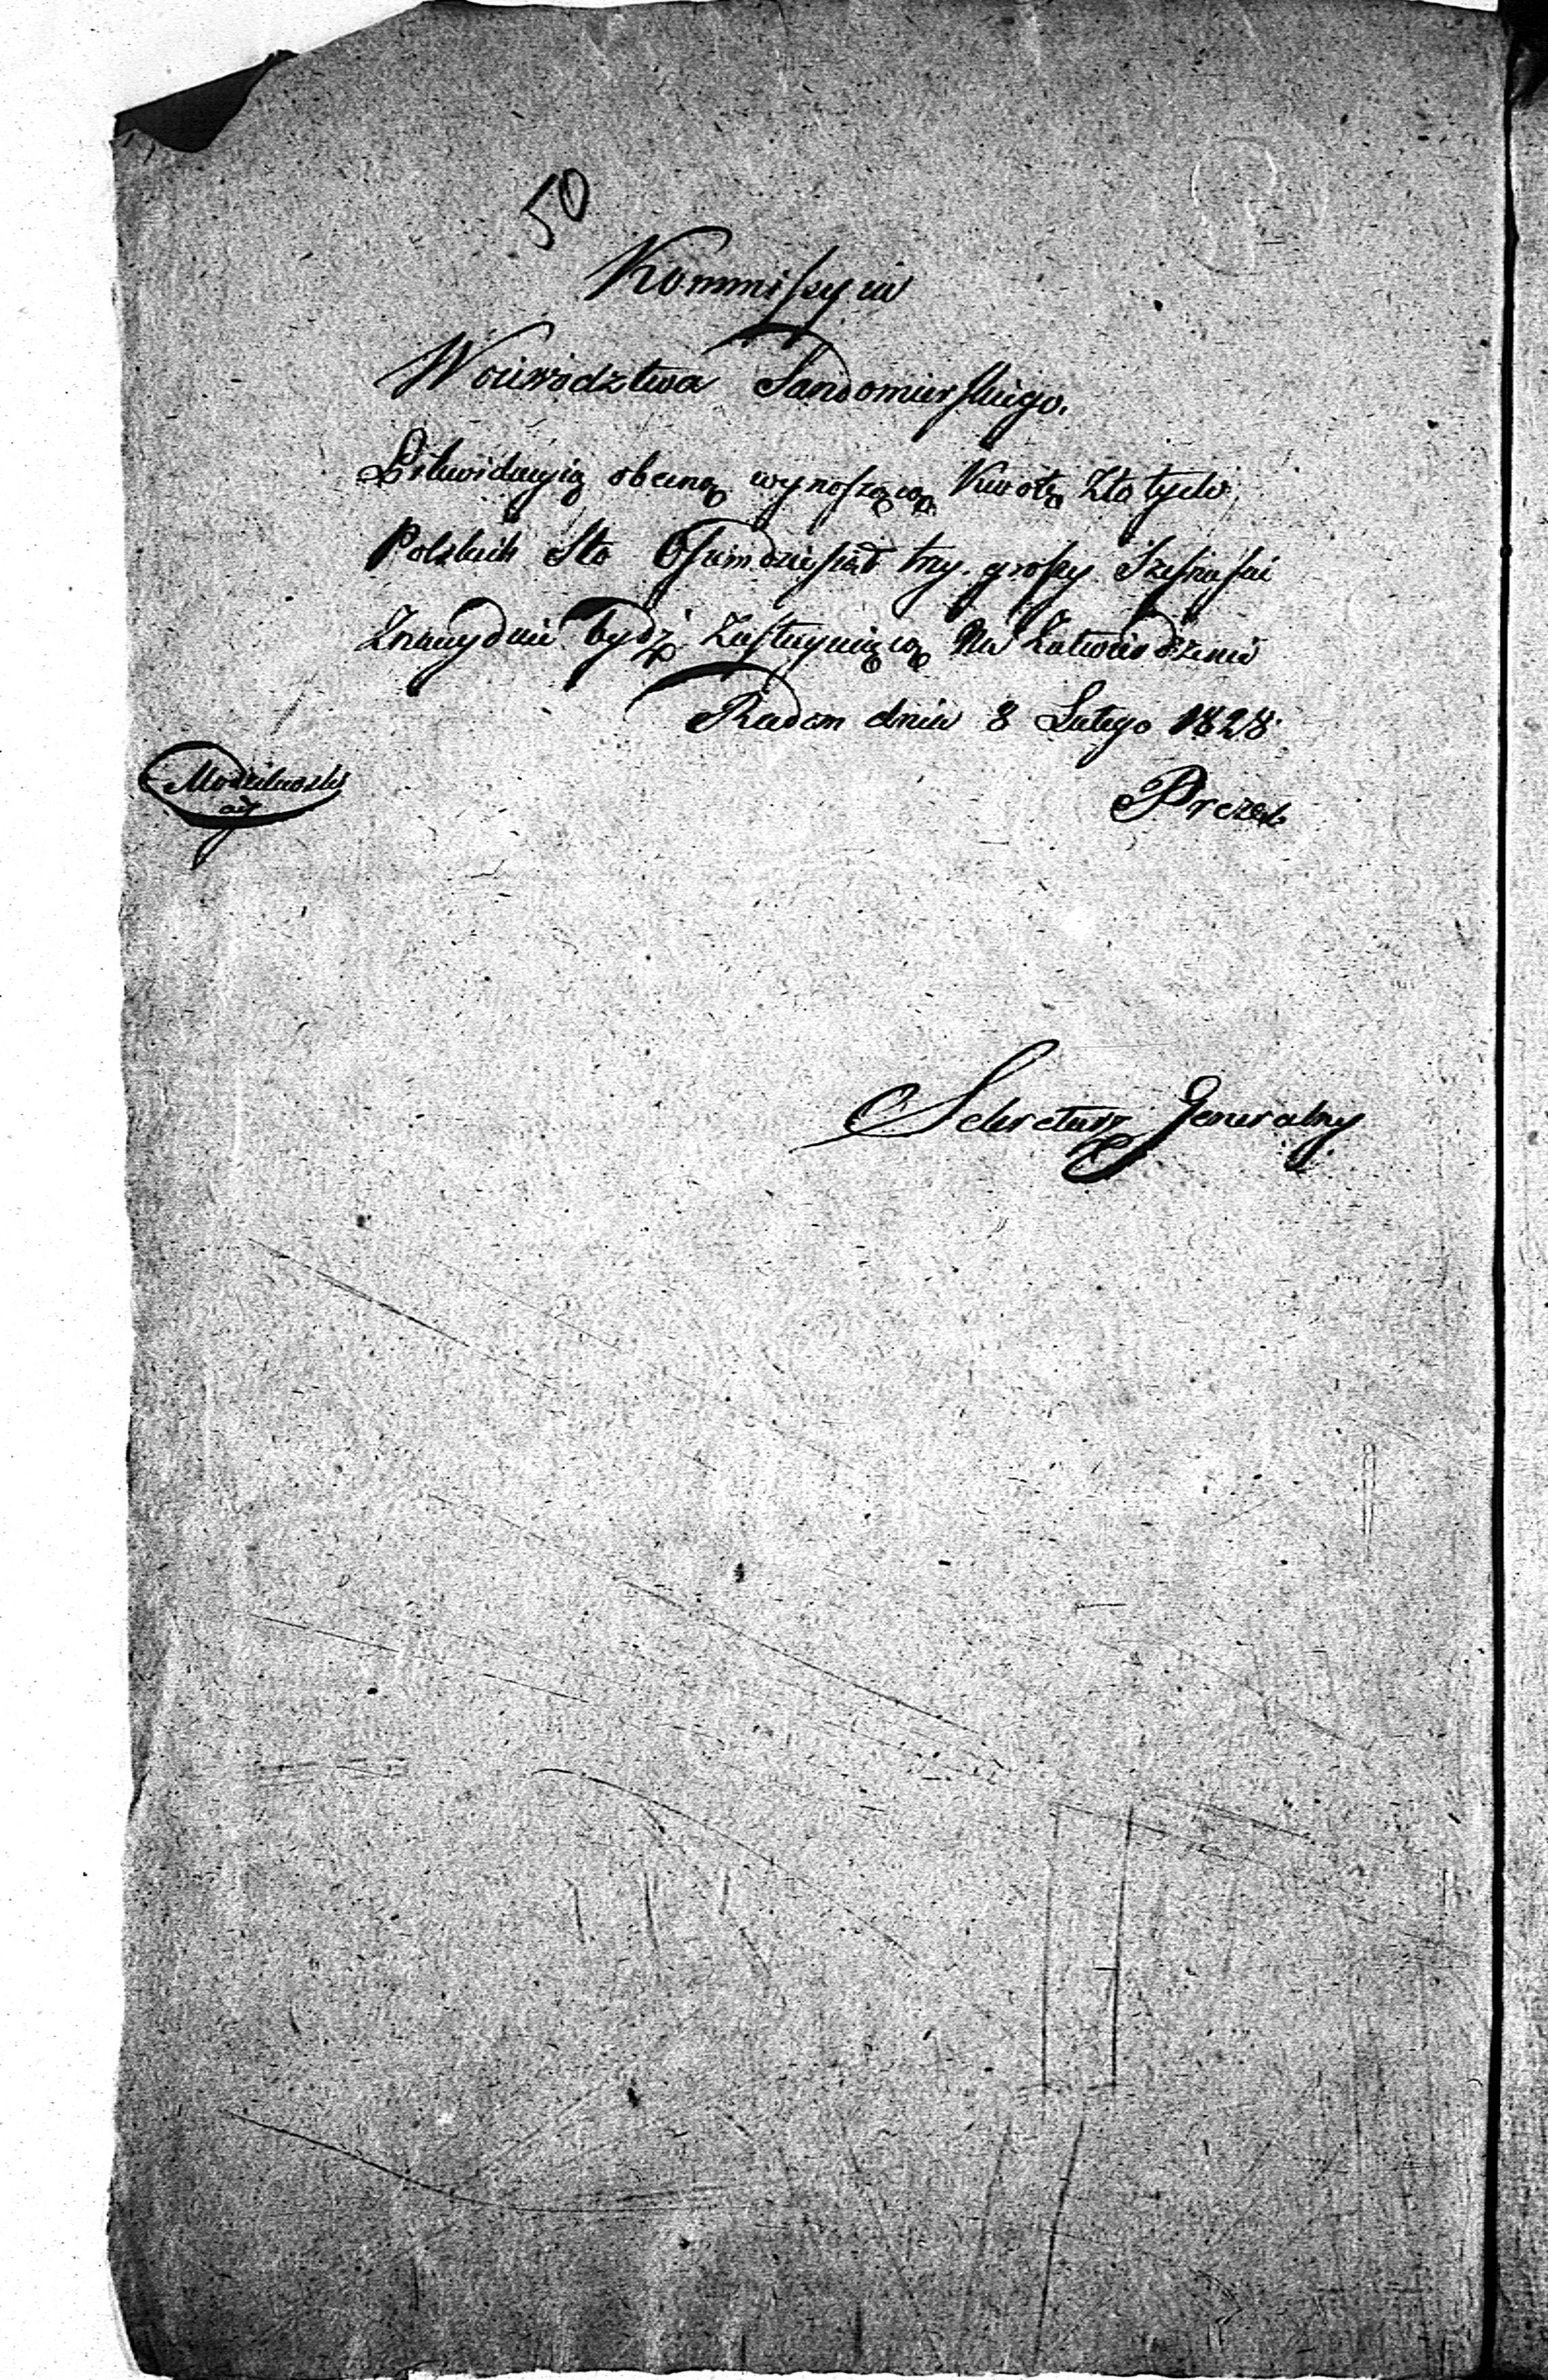 50
Kommissyia
Woiewództwa Sandomierskiego.
Likwidacyią obecną wynoszącą Kwotę Złotych
Polskich Sto Osiemdziesiąt trzy. groszy Szesnaście
Znayduie bydź Zasługuiącą Na Zatwierdzenie
Radom dnia 8 Lutego 1828.
Prezes
Sekretarz Generalny